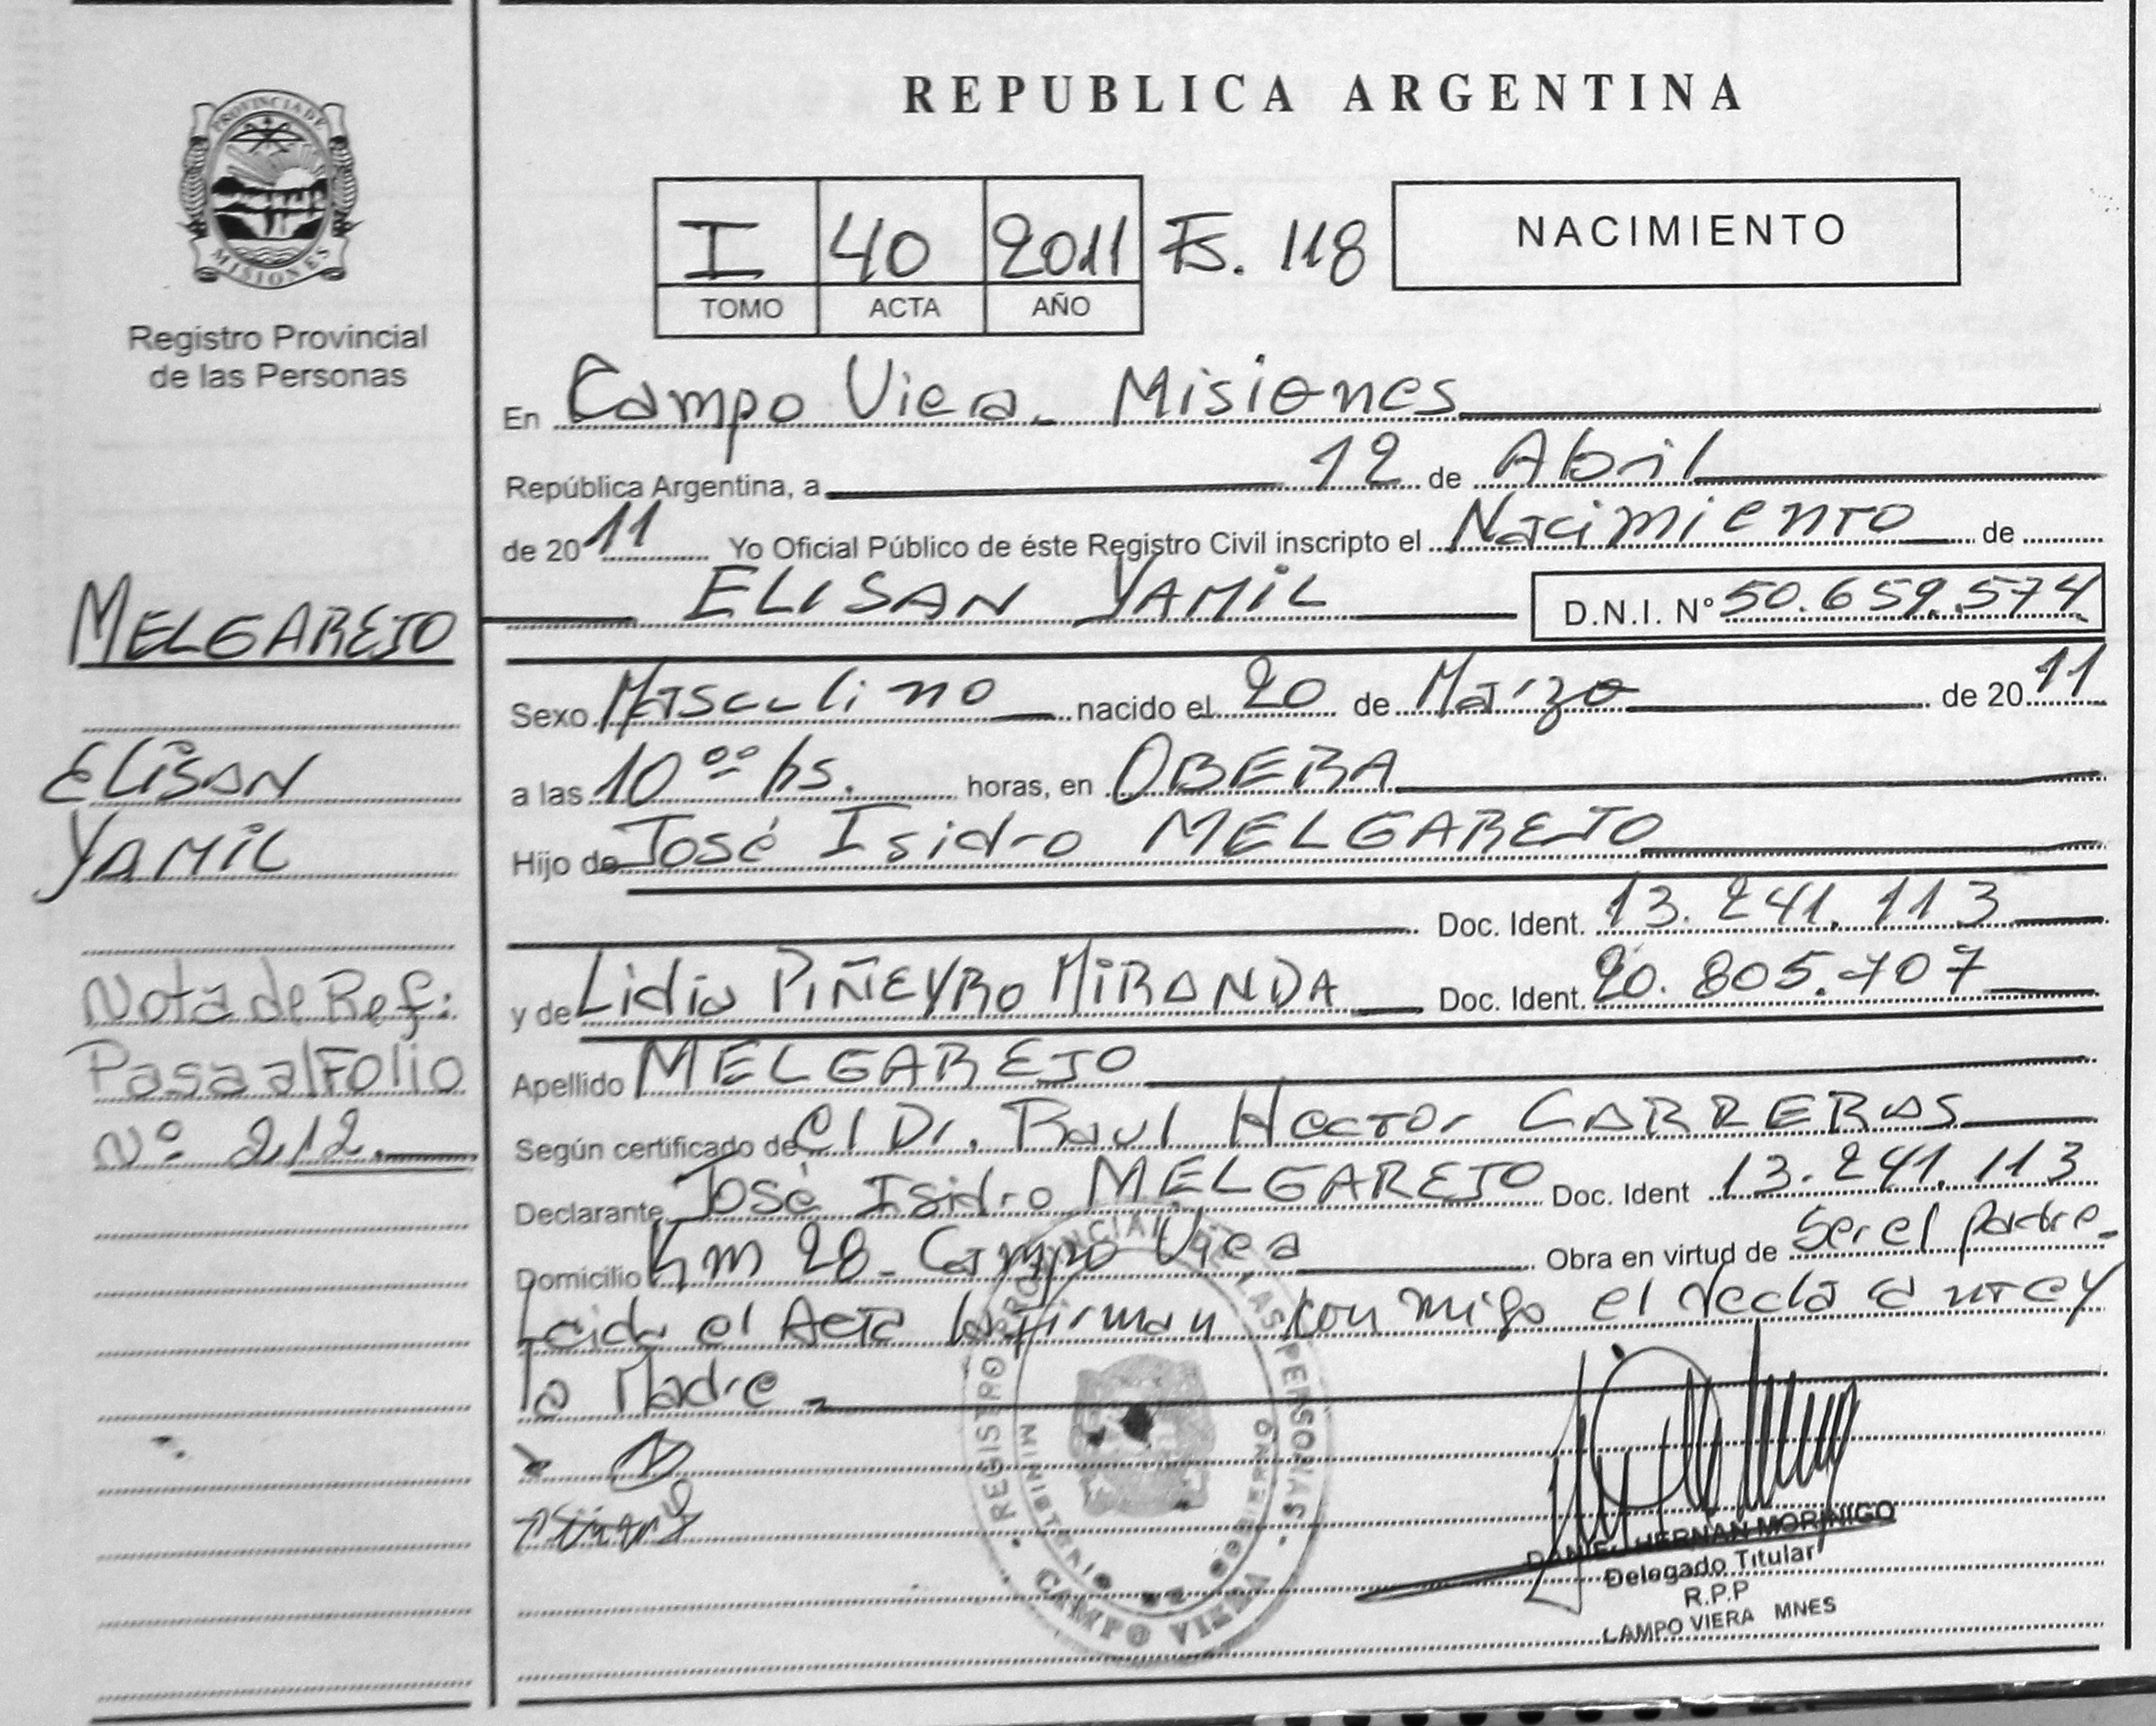 PROVINCIA DE
MISIONES
Registro Provincial
de las Personas
MELGAREJO
ELISAN
YAMIL
Nota de Ref:
Pasa al Folio
Nº 212.
REPUBLICA ARGENTINA
I 40 2011 Fs. 118 NACIMIENTO
TOMO ACTA AÑO
En Campo Viera - Misiones
República Argentina, a 12 de Abril
de 2011 Yo Oficial Público de éste Registro Civil inscripto el Nacimiento de
ELISAN YAMIL D.N.I. Nº 50.659.574
Sexo Masculino nacido el 20 de Marzo de 2011
a las 10 ºº hs. horas, en OBERA
Hijo de José Isidro MELGAREJO
Doc. Ident. 13.241.113
y de Lidia PIÑEYRO MIRANDA Doc. Ident. 20.805.707
Apellido MELGAREJO
Según certificado de el Dr. Raul Hector CARRERAS
Declarante José Isidro MELGAREJO Doc. Ident 13.241.113
Domicilio Km 28 - Campo Viera Obra en virtud de Ser el padre -
Leida el Acta la firman conmigo el declarante y
la Madre -
REGISTRO PROVINCIAL DE LAS PERSONAS
MINISTERIO DE GOBIERNO
CAMPO VIERA
DANIEL HERNAN MORINIGO
Delegado Titular
R.P.P
CAMPO VIERA MNES